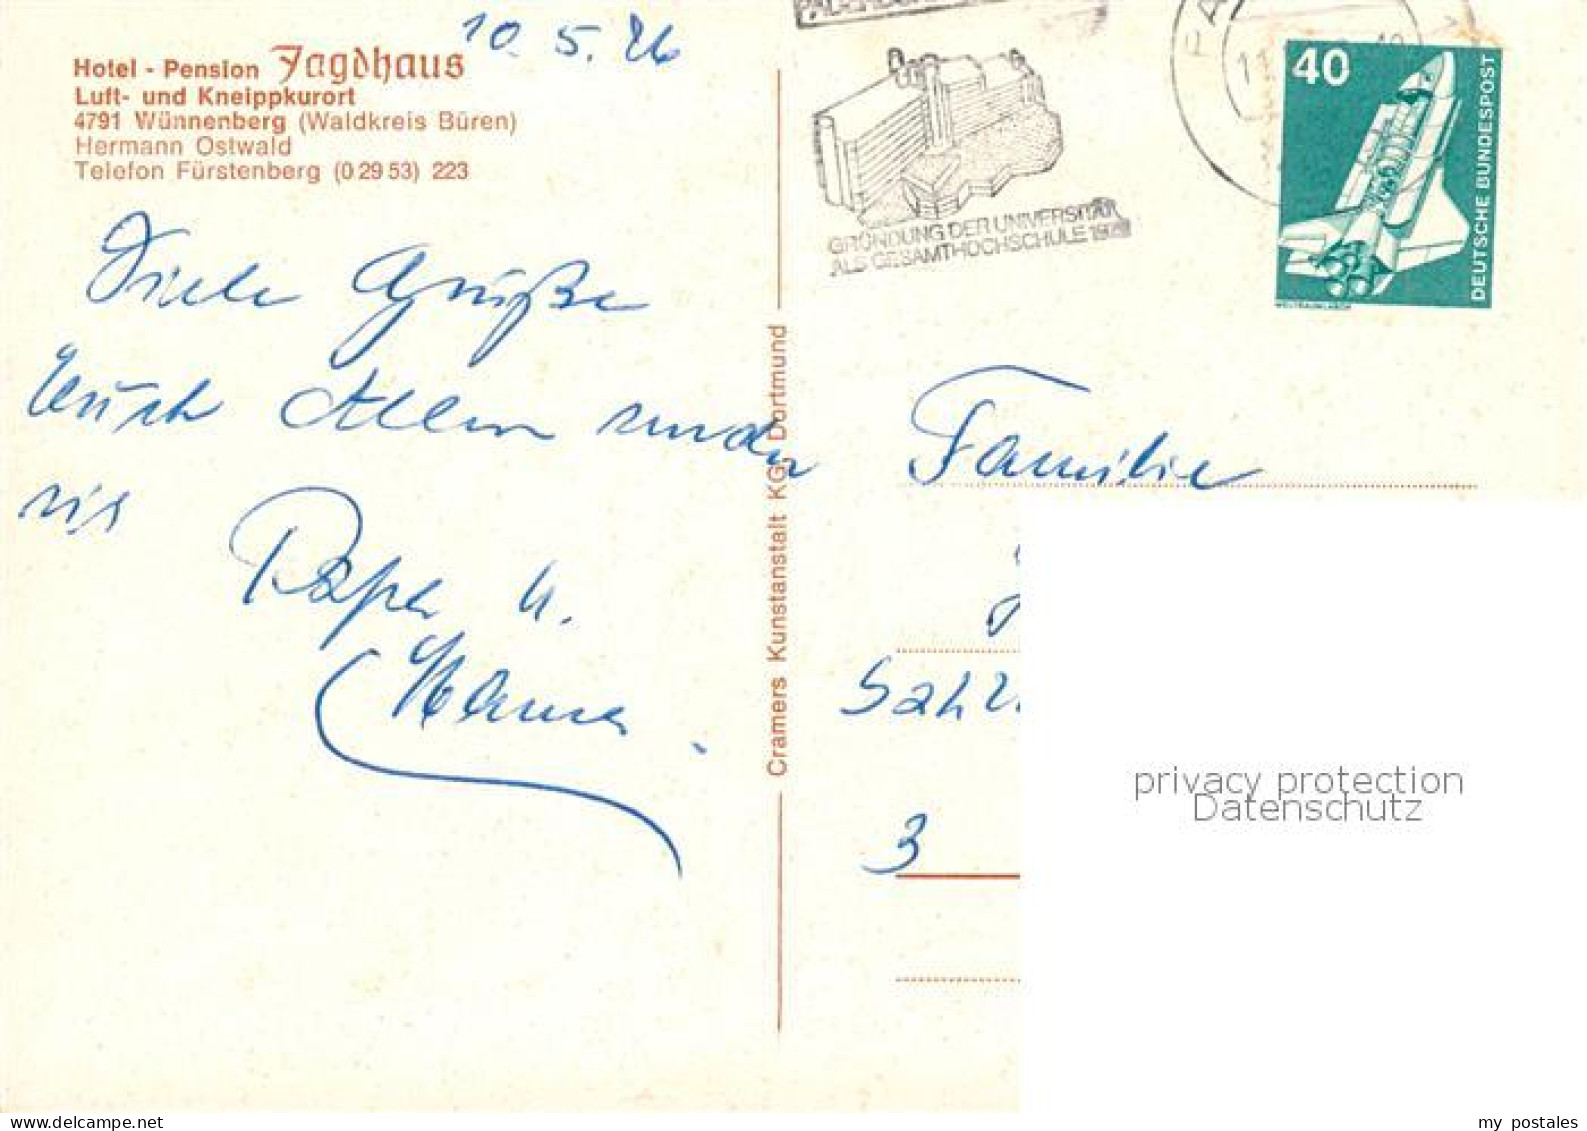 10. 5. 76
Hotel - Pension Jagdhaus
Luft- und Kneippkurort
4791 Wünnenberg (Waldkreis Büren)
Hermann Ostwald
Telefon Fürstenberg (0 29 53) 223
Viele Grüße
Euch Allen
Cramers Kunstanstalt KG, Dortmund
GRÜNDUNG DER UNIVERSITÄT
ALS GESAMTHOCHSCHULE
40
DEUTSCHE BUNDESPOST
WELTRAUMLABOR
Familie
3
privacy protection
Datenschutz
my postales